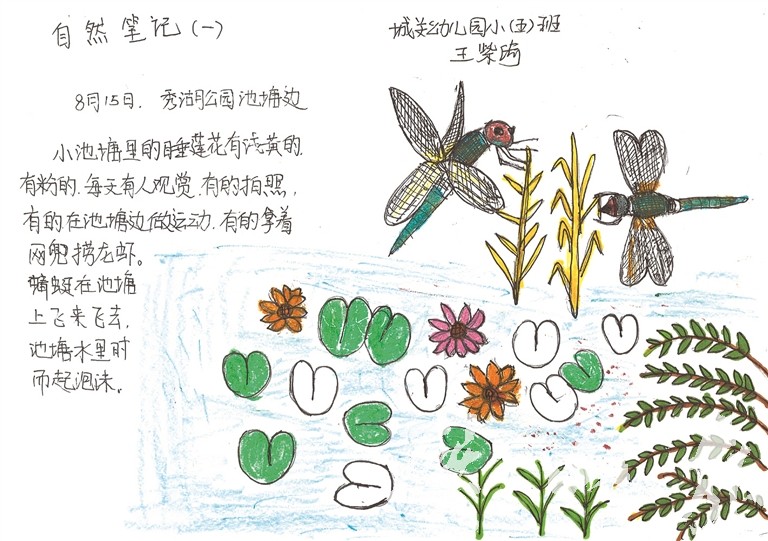 自然笔记(一)
城关幼儿园小(五)班
王紫瑜
8月15日. 秀湖公园池塘边
小池塘里的睡莲花有浅黄的.
有粉的.每天有人观赏.有的拍照,
有的在池塘边做运动.有的拿着
网兜捞龙虾。
蜻蜓在池塘
上飞来飞去,
池塘水里时
而起泡沫。